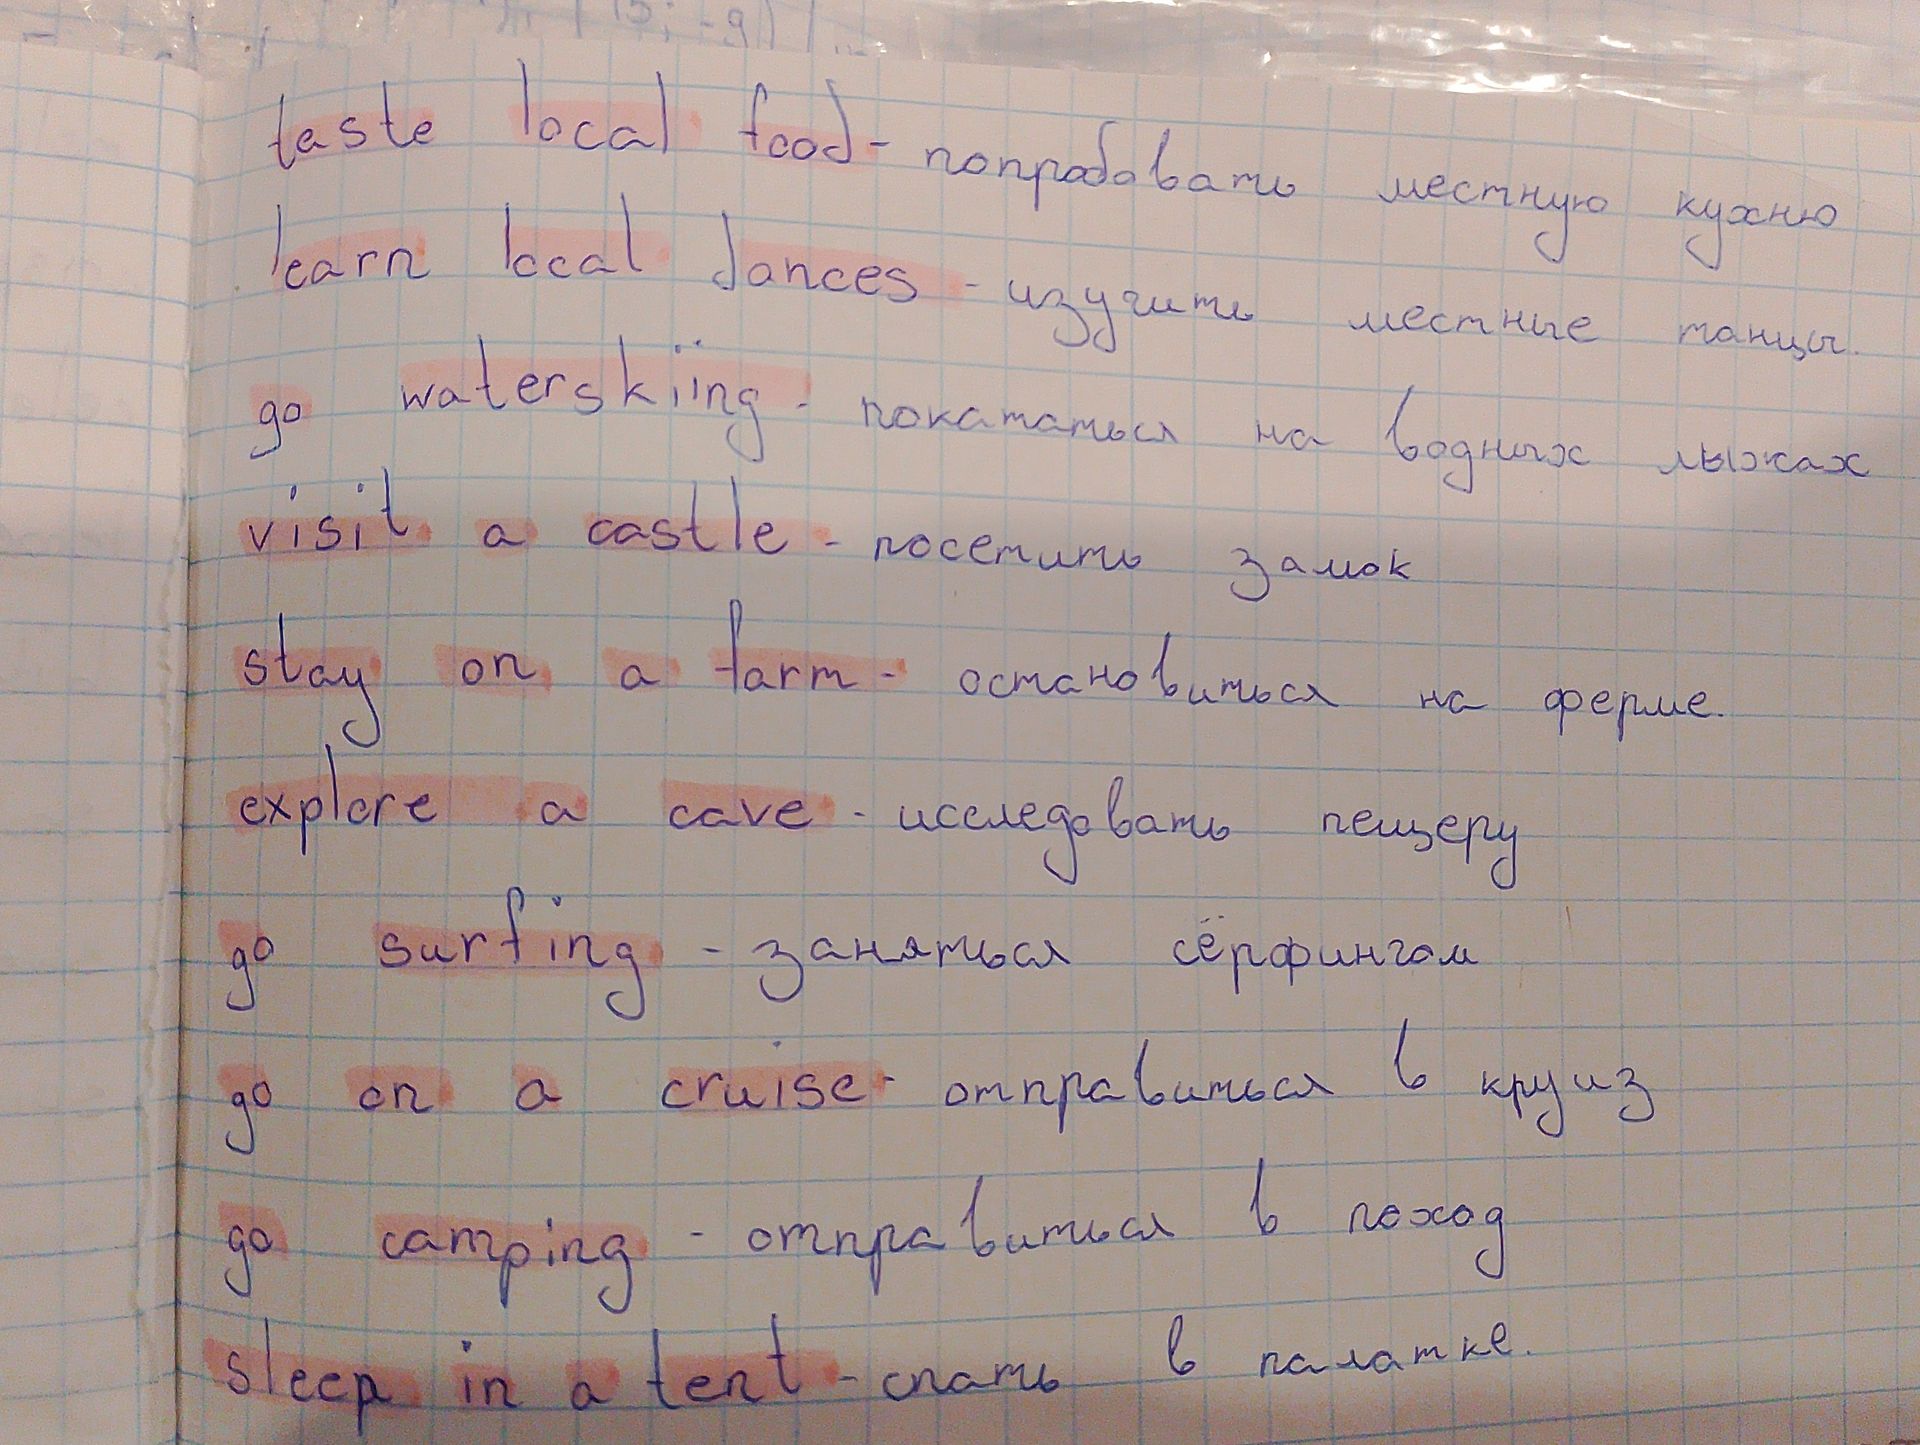 taste local food - попробовать местную кухню
learn local dances - изучить местные танцы.
go waterskiing - покататься на водных лыжах
visit a castle - посетить замок
stay on a farm - остановиться на ферме.
explore a cave - исследовать пещеру
go surfing - заняться сёрфингом
go on a cruise - отправиться в круиз
go camping - отправиться в поход
sleep in a tent - спать в палатке.